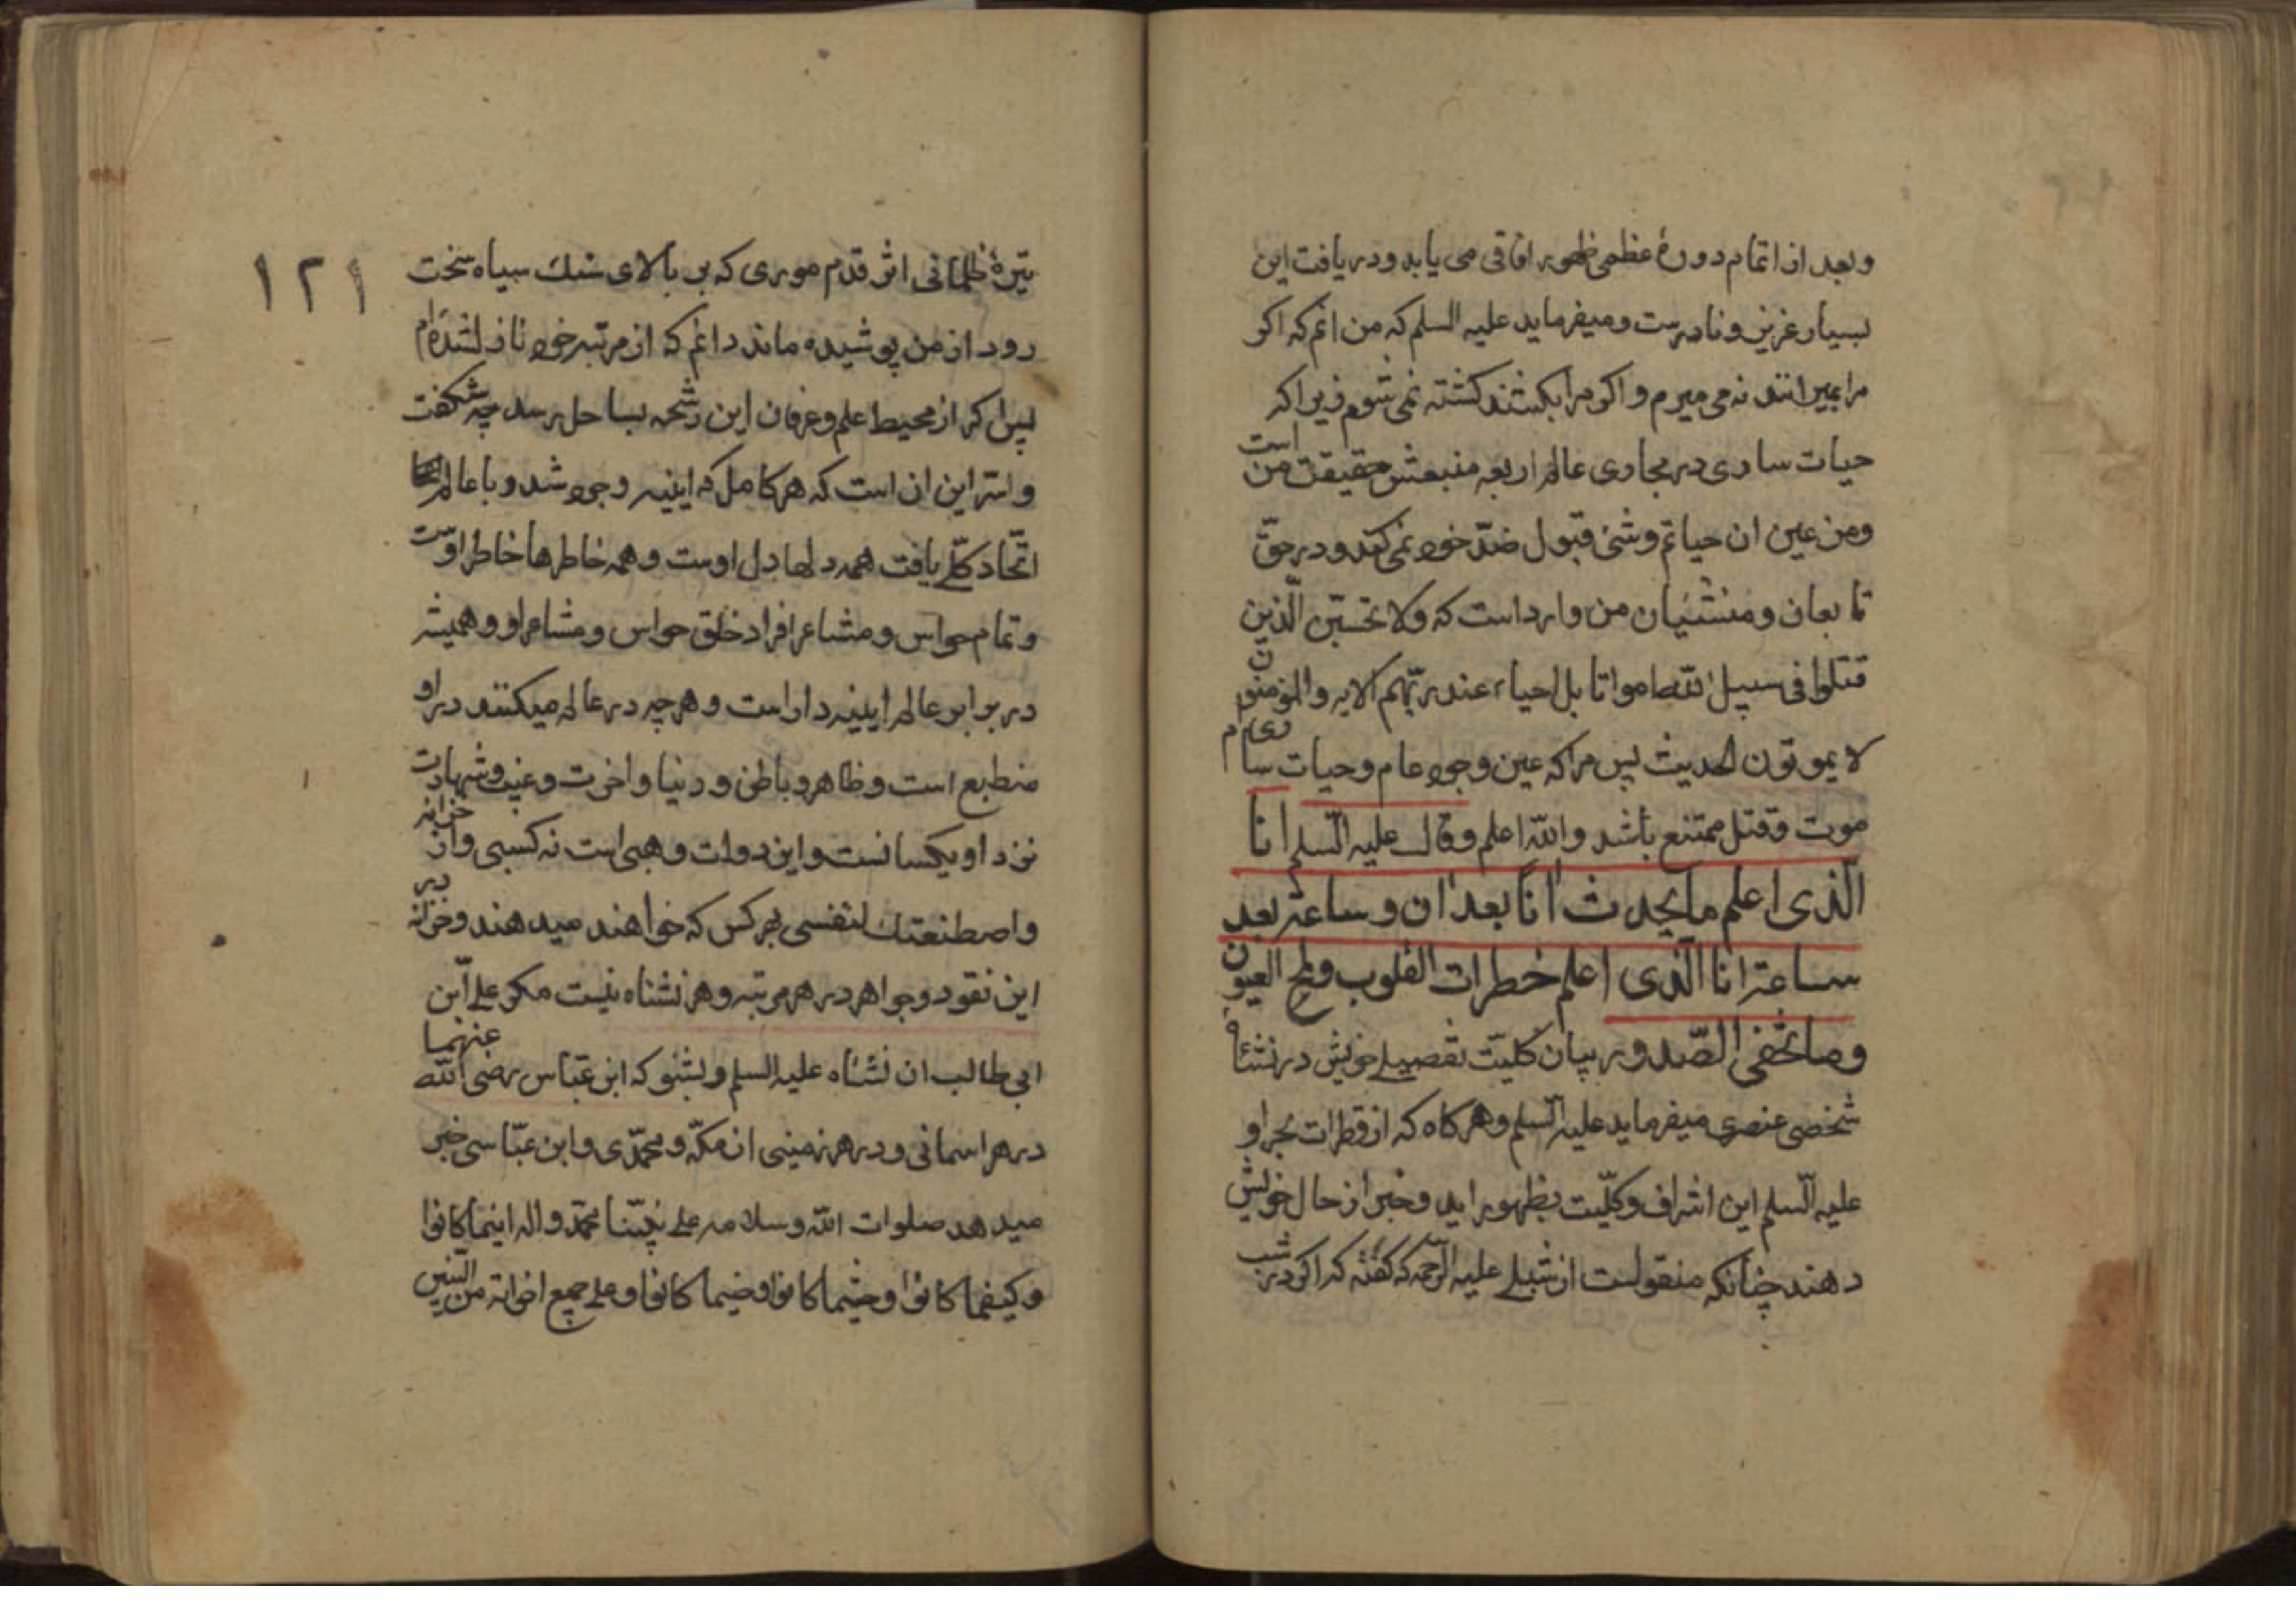 وبعد از اتمام دورۀ عظمی ظهور افاقی می یابد ودریافت این
بسیار عزیز ونادرست ومیفرماید علیه السلم که من انم که اکر
مرا بمیرانند نه می میرم واکر مرا بکشند کشته نمی شوم زیرا که
حیات ساری در مجاری عالم اربعه منبعش حقیقت من است
ومن عین ان حیاتم وشئ قبول ضدّ خود نمی کند ودر حقّ
تابعان ومنتسبان من وارداست که ولا تحسبنّ الّذین
قتلوا فی سبیل الله امواتا بل احیاء عند ربّهم الایه والمؤمنون
لا یموتون الحدیث پس مرا که عین وجود عام وحیات ساری ام
موت وقتل ممتنع باشد والله اعلم وقال علیه السّلم انا
الّذی اعلم ما یحدث انا بعد ان وساعة بعد
ساعة انا الّذی اعلم خطرات القلوب ولمح العیون
وما تخفی الصّدور بیان کلیّت تفصیلی خویش در نشأه
شخصی عنصری میفرماید علیه السّلم وهرکاه که از قطرات بحر او
علیه السّلم این اشراف وکلّیت بظهور اید وخبر از حال خویش
دهند چنانکه منقولست از شبلی علیه الرّحمه که کفته که اکر در شب
۱۲۱
تیرۀ ظلمانی اثر قدم موری که بر بالای سنک سیاه سخت
رود از من پوشیده ماند دانم که از مرتبه خود نازل شده ام
پس اکر از محیط علم وعرفان این رشحه بساحل رسد چه شکفت
وسّر این ان است که هر کامل که اینیه وجود شد وبا عالم
اتّحاد کلّی یافت همه دلها دل اوست وهمه خاطرها خاطر اوست
وتمام حواس ومشاعر افراد خلق حواس ومشاعر او وهمیشه
در برابر عالم اینیه دار است وهر چه در عالم میکنند در او
منطبع است وظاهر وباطن ودنیا واخرت وغیب وشهادت
نزد او یکسانست واین دولت وهبی است نه کسبی واز خزانه
واصطنعتك لنفسی بهر کس که خواهند میدهند وخزانه دیر
این نقود وجواهر در هر مرتبه وهر نشناه نیست مکر علی ابن
ابی طالب ان نشناه علیه السلم وبشنو که ابن عبّاس رضی الله عنهما
در هر اسمانی ودر هر زمینی از مکّه ومحمّدی وابن عبّاسی خبر
میدهد صلوات الله وسلامه علی نبیّنا محمّد واله اینما کانوا
وکیفما کانوا وحیثما کانوا وفیما کانوا وعلی جمیع اخوانه من النبیین